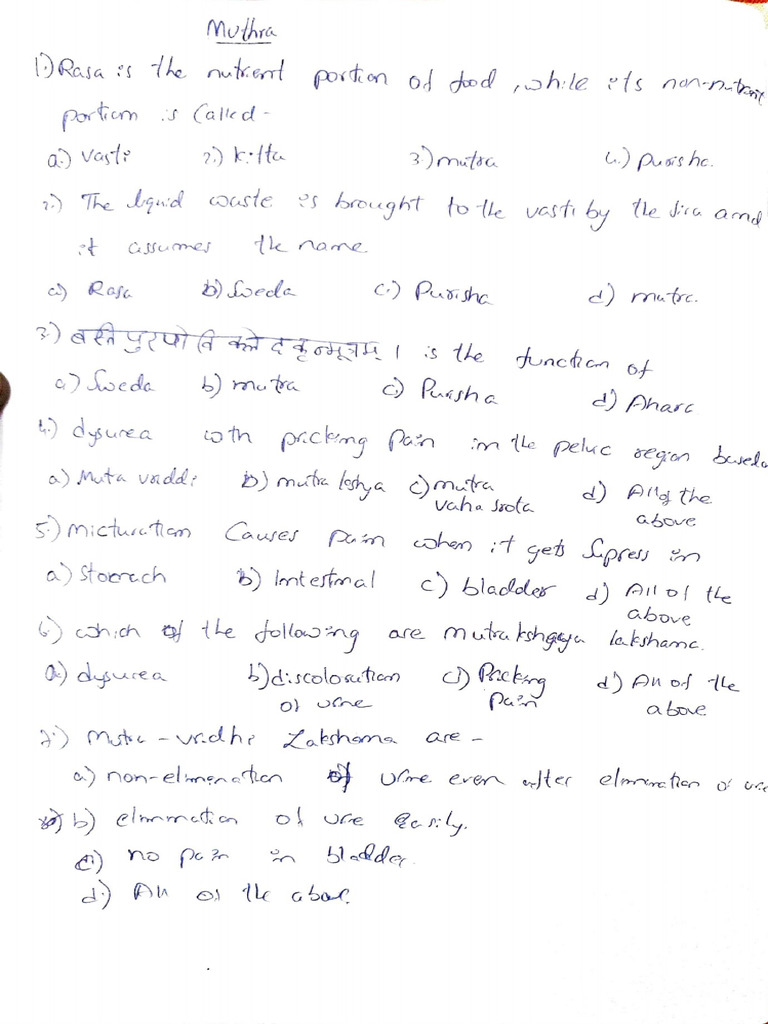 Muthra
1.) Rasa is the nutrient portion of food, while its non-nutrient
portion is Called -
a.) vasti 2.) kitta 3.) mutra 4.) purisha.
2.) The liquid waste is brought to the vasti by the sira and
it assumes the name
a) Rasa b) Sweda c.) Purisha d) mutra.
3.) । is the function of
a) Sweda b) mutra c) Purisha d) Ahara
4.) dysurea with pricking pain in the pelvic region based
a) Muta vriddi b) mutra kshya c) mutra d) All of the
vaha srota above
5.) micturation Causes pain when it gets Supress in
a) stomach b) Intestinal c) bladder d) All of the
above
6.) which of the following are mutrakshyaya lakshama.
a) dysurea b) discoloration c) Pricking d) All of the
of urine pain above
7.) Mutra - vridhi Lakshama are -
a.) non-elimenation of urine even after elimination of urine
b) elimination of urine easily.
c) no pain in bladder.
d) All of the above.